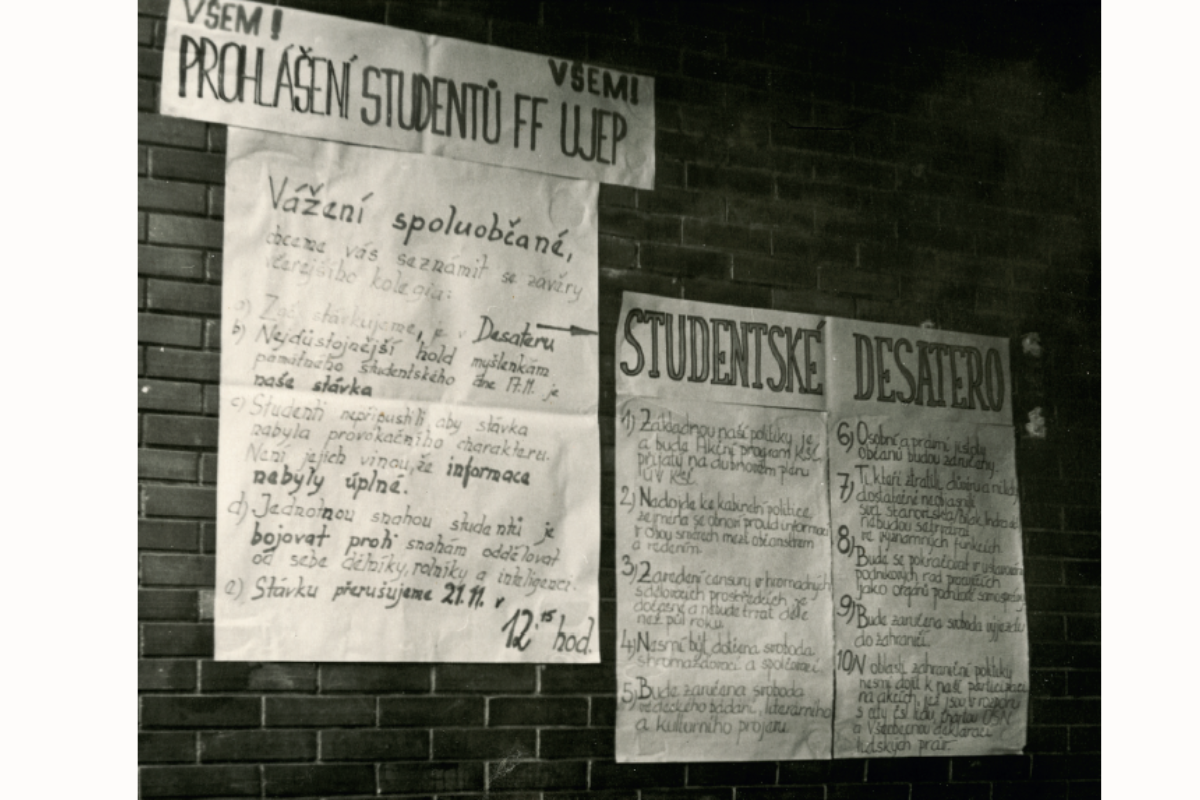 VŠEM!
VŠEMI
PROHLÁŠENÍ STUDENTŮ FF UJEP
Vážení spoluobčané,
chceme vás seznámit se závěry
včerejšího kolegia:
a) Zač stávkujeme, je v Desateru
b) Nejdůstojnější hold myšlenkám
památného studentského dne 17.11. je
naše stávka
c) Studenti nepřipustili aby stávka
nabyla provokačního charakteru.
Není jejich vinou, že informace
nebyly úplné.
d) Jednotnou snahou studentů je
bojovat proti snahám oddělovat
od sebe dělníky, rolníky a inteligenci.
e) Stávku přerušujeme 21.11. v
12:15 hod.
STUDENTSKÉ
1) Základnou naší politiky je
a bude Akční program KSČ
přijatý na dubnovém plénu
ÚV KSČ.
2) Nedojde ke kabinetní politice,
zejména se obnoví proud informací
v obou směrech mezi občanstvem
a vedením.
3) Zavedení censury v hromadných
sdělovacích prostředcích je
dočasné a nebude trvat déle
než půl roku.
4) Nesmí být dotčena svoboda
shromažďovací a spolčovací.
5) Bude zaručena svoboda
vědeckého bádání, literárního
a kulturního projevu.
DESATERO
6) Osobní a právní jistoty
občanů budou zaručeny.
7) Ti, kteří ztratili důvěru a nikdy
dostatečně neobjasnili
svá stanoviska
nebudou setrvávat
ve významných funkcích.
8) Bude se pokračovat v ustavování
podnikových rad pracujících
jako orgánů podnikové samosprávy
9) Bude zaručena svoboda výjezdu
do zahraničí.
10) V oblasti zahraniční politiky
nesmí dojít k naší participaci
na akcích, jež jsou v rozporu
s city čsl. lidu, Chartou OSN
a Všeobecnou deklarací
lidských práv.